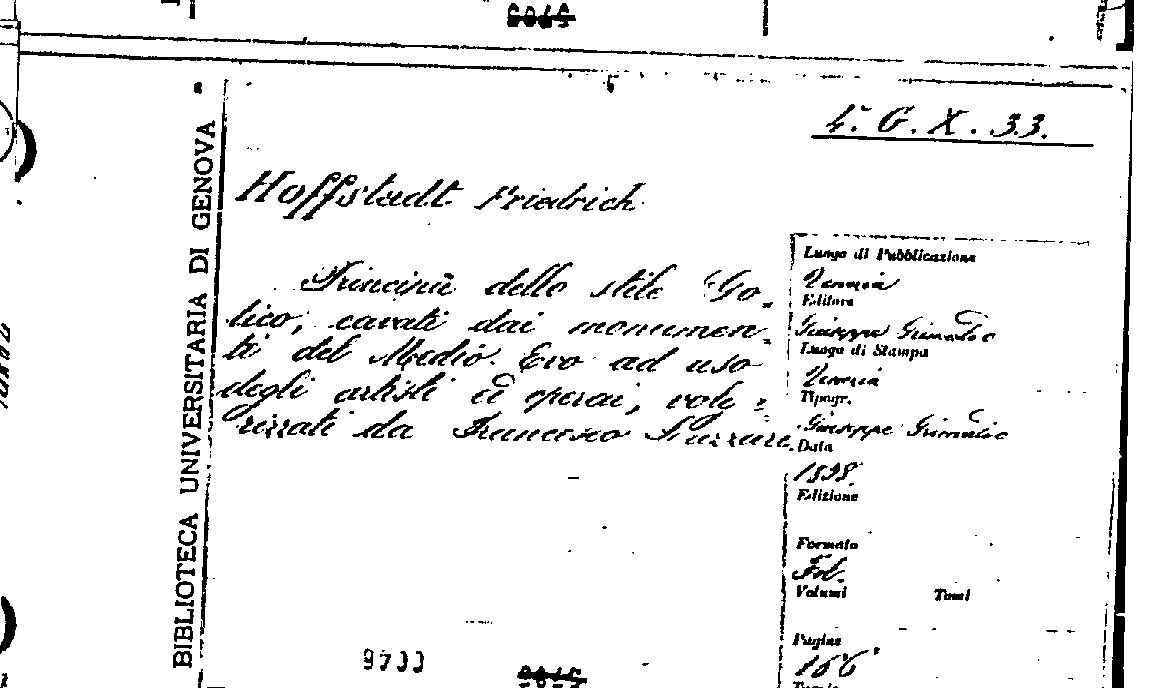 BIBLIOTECA UNIVERSITARIA DI GENOVA
4.° G. X. 33.
Hoffstadt Friedrich
Principii dello stile Go-
tico, cavati dai monumen-
ti del Medio Evo ad uso
degli artisti ed operai, volga-
rizzati da Francesco
Luogo di Pubblicazione
Venezia
Editore
Giuseppe Grimaldo
Luogo di Stampa
Venezia
Tipogr.
Giuseppe Grimaldo
Data
Edizione
Formato
Fol.
Volumi Tomi
Pagine
166
9700